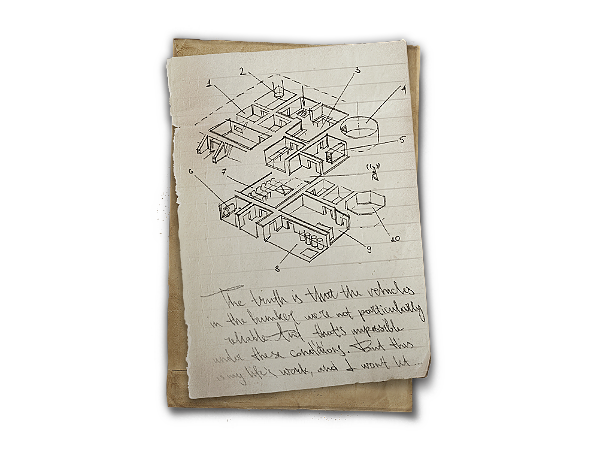 2
1
3
4
5
7
6
10
9
8
The truth is that the vehicles
in the bunker were not particularly
reliable that's impossible
under these conditions. But this
is my life's work, and I won't let ...